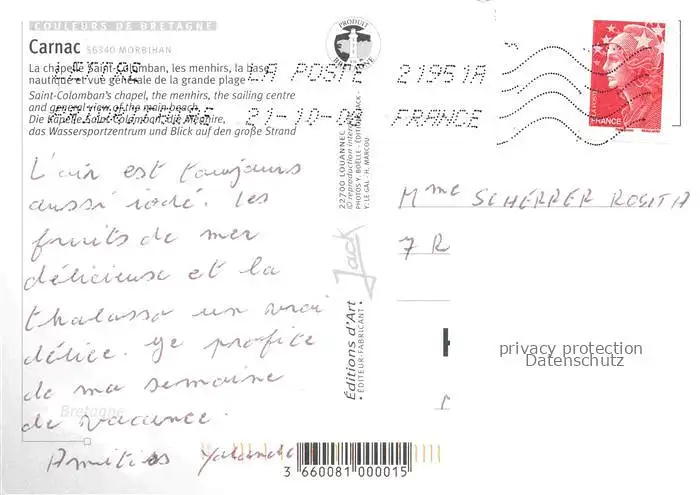 COULEURS DE BRETAGNE
Carnac 56340 MORBIHAN
La chapelle Saint-Colomban, les menhirs, la base
nautique et vue générale de la grande plage
Saint-Colomban's chapel, the menhirs, the sailing centre
and general view of the main beach
Die Kapelle Saint-Colomban, die Menhire,
das Wassersportzentrum und Blick auf den große Strand
PRODUIT
LA POSTE 21951A
21-10-0 FRANCE
FRANCE
22700 LOUANNEC
© reproduction interdite
PHOTOS Y. BOËLLE - ÉDITIONS JACK -
Y. LE GAL - H. MARCOU
Jack
Éditions d'Art
• ÉDITEUR-FABRICANT •
L'air est toujours
aussi iodé. Les
fruits de mer
délicieuse et la
thalasso un vrai
délice. Je profite
de ma semaine
de vacance.
Bretagne
Amitiés Yolande
Mme SCHERRER ROSITA
7 R
privacy protection
Datenschutz
3 660081 000015